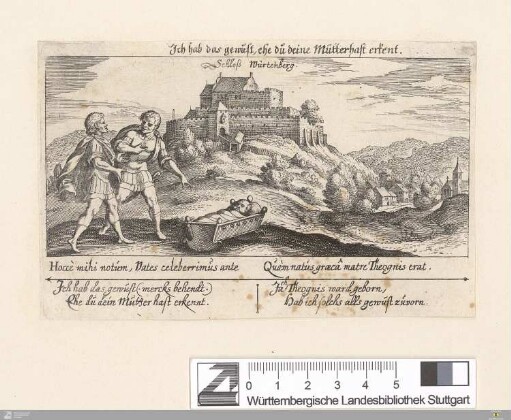 Ich hab das gewüst, ehe dü deine Mütter hast erkent.
Schloß Würtenberg.
Hoccè mihi notüm, Vates celeberrimüs ante Qüàm natüs græcâ matre Theognis erat.
Ich hab das gewüst (mercks behendt.)
Ehe dü dein Mütter hast erkennt.
Ja Theognis ward geborn,
Hab ich solchs alls gewüst züvorn
0 1 2 3 4 5
Württembergische Landesbibliothek Stuttgart